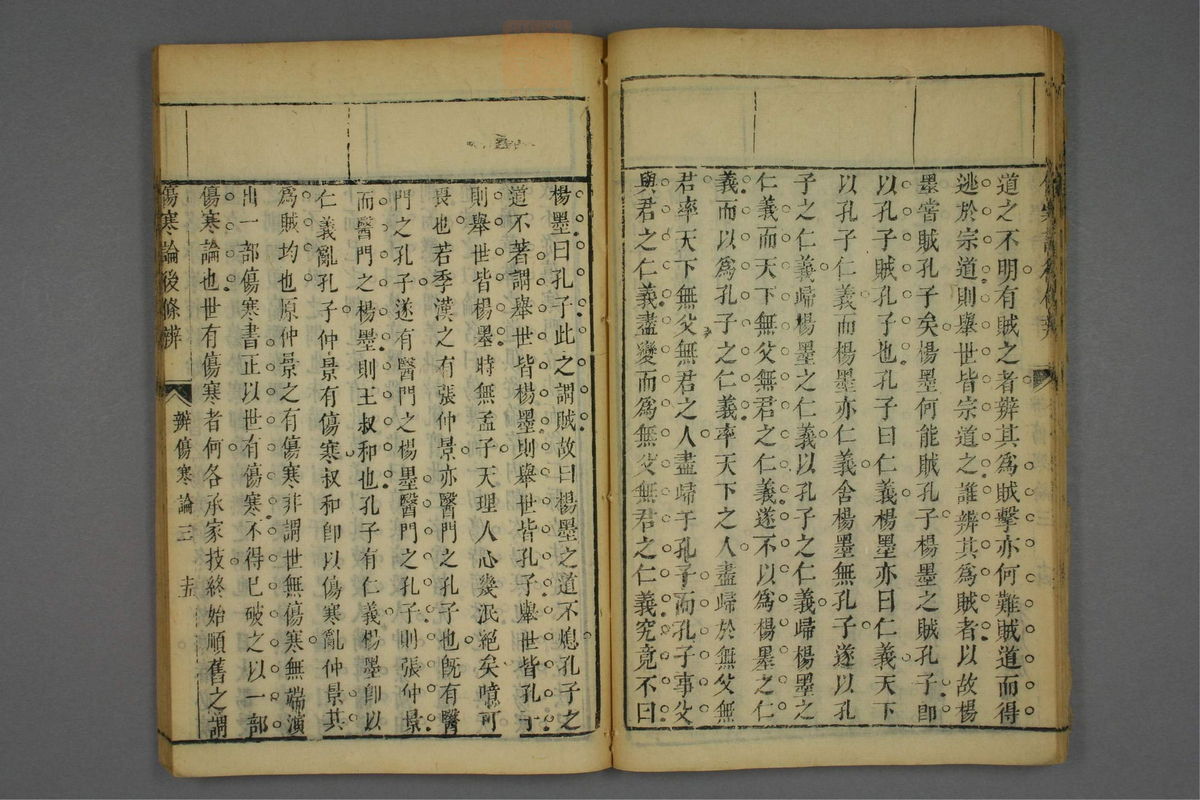 道之不明有賊之者辨其為賊擊亦何難賊道而得
逃於宗道則舉世皆宗道之誰辨其為賊者以故楊
墨嘗賊孔子矣楊墨何能賊孔子楊墨之賊孔子即
以孔子賊孔子也孔子曰仁義楊墨亦曰仁義天下
以孔子仁義而楊墨亦仁義舍楊墨無孔子遂以孔
子之仁義歸楊墨之仁義以孔子之仁義歸楊墨之
仁義而天下無父無君之仁義遂不以為楊墨之仁
義而以為孔子之仁義率天下之人盡歸於無父無
君率天下無父無君之人盡歸于孔子而孔子事父
與君之仁義盡變而為無父無君之仁義究竟不曰
楊墨曰孔子此之謂賊故曰楊墨之道不熄孔子之
道不著謂舉世皆楊墨則舉世皆孔子舉世皆孔子
則舉世皆楊墨時無孟子天理人心幾泯絕矣噫可
畏也若季漢之有張仲景亦醫門之孔子也既有醫
門之孔子遂有醫門之楊墨醫門之孔子則張仲景
而醫門之楊墨則王叔和也孔子有仁義楊墨即以
仁義亂孔子仲景有傷寒叔和即以傷寒亂仲景其
為賊均也原仲景之有傷寒非謂世無傷寒無端演
出一部傷寒書正以世有傷寒不得已破之以一部
傷寒論也世有傷寒者何各承家技終始順舊之謂
傷寒論後條辨
辨傷寒論三
十五